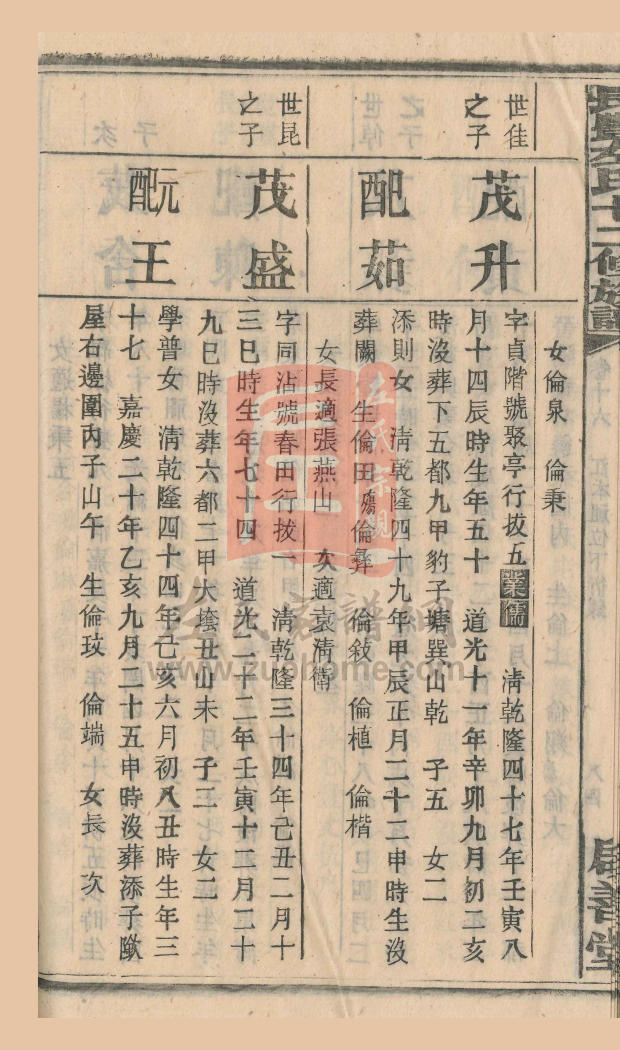 女倫泉　倫秉
世佳之子
茂升
字貞階號聚亭行拔五業儒　清乾隆四十七年壬寅八
月十四辰時生年五十　道光十一年辛卯九月初二亥
時沒葬下五都九甲豹子塘巽山乾　子五　女二
配茹
添則女　清乾隆四十九年甲辰正月二十三申時生沒
葬闕　生倫田　倫彝　倫敍　倫植　倫楷
女長適張燕山　次適袁清衛
世昆之子
茂盛
字同沾號春田行拔一　清乾隆三十四年己丑二月十
三巳時生年七十四　道光二十二年壬寅十二月二十
九巳時沒葬六都二甲大塋丑山未　子三　女二
元配王
學普女　清乾隆四十四年己亥六月初八丑時生年三
十七　嘉慶二十年乙亥九月二十五申時沒葬添子
屋右邊圍丙子山午　生倫玟　倫端　女長　次
氏十二修族譜
善堂
左氏宗親
左氏家譜網
www.zuohome.com